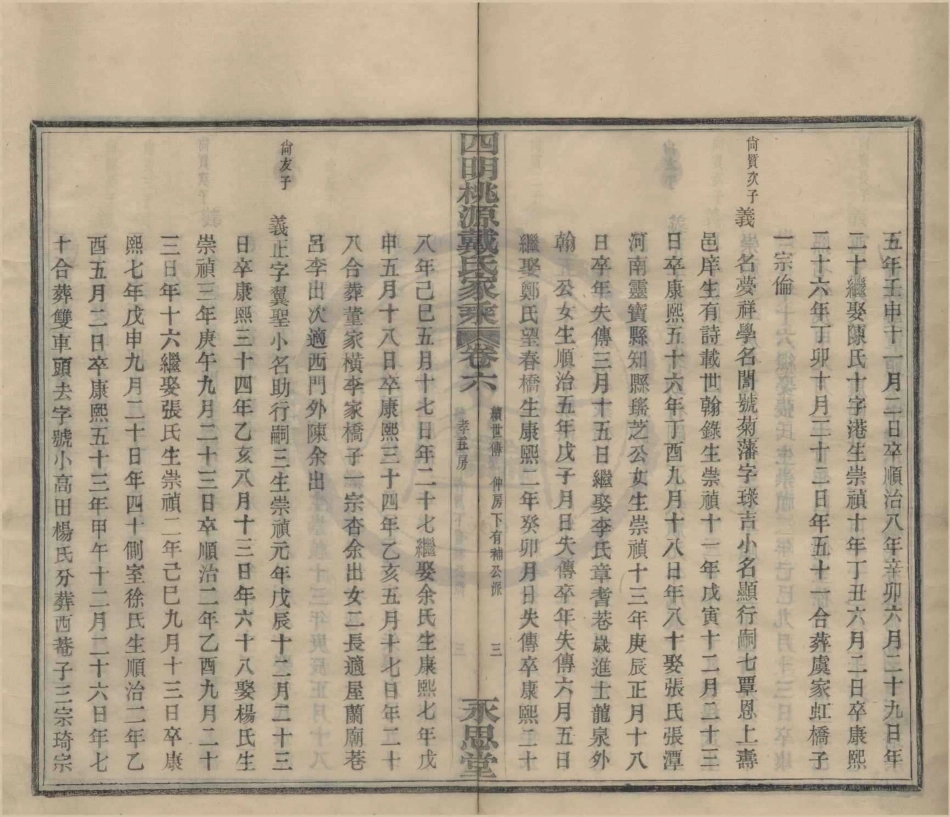 五年壬申十一月二日卒順治八年辛卯六月二十九日年
二十繼娶陳氏十字港生崇禎十年丁丑六月二日卒康熙
二十六年丁卯十月二十二日年五十一合葬虞家虹橋子
一宗倫
尙質次子
義
一名夢祥學名閶號菊藩字琭吉小名顯行嗣七覃恩上壽
邑庠生有詩載世翰錄生崇禎十一年戊寅十二月二十三
日卒康熙五十六年丁酉九月十八日年八十娶張氏張潭
河南靈寶縣知縣瑤芝公女生崇禎十三年庚辰正月十八
日卒年失傳三月十五日繼娶李氏章耆巷歲進士龍泉外
翰 公女生順治五年戊子月日失傳卒年失傳六月五日
繼娶鄭氏望春橋生康熙二年癸卯月日失傳卒康熙二十
四明桃源戴氏家乘 卷六
續世傳 仲房下有補公派
孝莊房
三
永思堂
八年己巳五月十七日年二十七繼娶余氏生康熙七年戊
申五月十八日卒康熙三十四年乙亥五月十七日年二十
八合葬董家橫李家橋子一宗杏余出女二長適屋蘭廟巷
呂李出次適西門外陳余出
尙友子
義正字翼聖小名助行嗣三生崇禎元年戊辰十二月二十三
日卒康熙三十四年乙亥八月十三日年六十八娶楊氏生
崇禎三年庚午九月二十三日卒順治二年乙酉九月二十
三日年十六繼娶張氏生崇禎二年己巳九月十三日卒康
熙七年戊申九月二十日年四十側室徐氏生順治二年乙
酉五月二日卒康熙五十三年甲午十二月二十六日年七
十合葬雙車頭去字號小高田楊氏分葬西菴子三宗琦宗